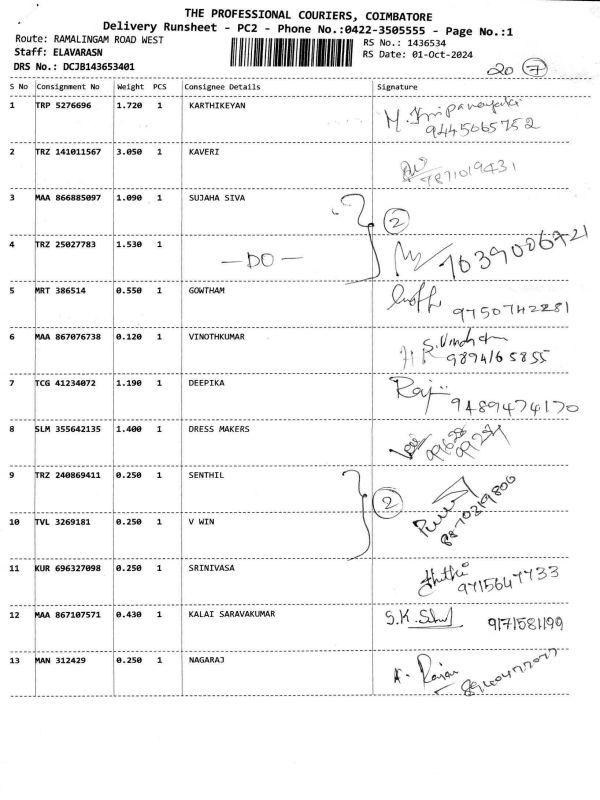 THE PROFESSIONAL COURIERS, COIMBATORE
Delivery Runsheet - PC2 - Phone No.:0422-3505555 - Page No.:1
Route: RAMALINGAM ROAD WEST
RS No.: 1436534
Staff: ELAVARASN
RS Date: 01-Oct-2024
DRS No.: DCJB143653401
20 7
S No Consignment No Weight PCS Consignee Details Signature
1 TRP 5276696 1.720 1 KARTHIKEYAN
9445065752
2 TRZ 141011567 3.050 1 KAVERI
9871019431
3 MAA 866885097 1.090 1 SUJAHA SIVA
2
4 TRZ 25027783 1.530 1
— DO —
7039006721
5 MRT 386514 0.550 1 GOWTHAM
9750742281
6 MAA 867076738 0.120 1 VINOTHKUMAR
9894165855
7 TCG 41234072 1.190 1 DEEPIKA
Raj
9489474170
8 SLM 355642135 1.400 1 DRESS MAKERS
9 TRZ 240869411 0.250 1 SENTHIL
2
8870219800
10 TVL 3269181 0.250 1 V WIN
11 KUR 696327098 0.250 1 SRINIVASA
9715647733
12 MAA 867107571 0.430 1 KALAI SARAVAKUMAR
S.K.
9171581199
13 MAN 312429 0.250 1 NAGARAJ